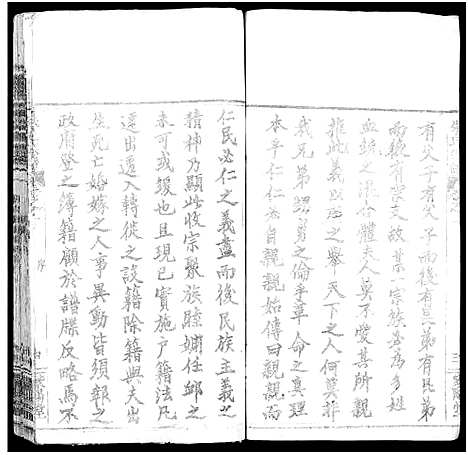 有父子有父子而後有兄弟有兄弟
而後有宗支故某一宗族
血統之混合體夫人莫不愛其所親
推此義以愛之舉天下之人何莫非
我兄弟甥舅之倫乎革命之真理
本乎仁為自親親始傳曰親親而
仁民必仁之義盡而後民族主義之
精神乃顯此收宗聚族睦婣任卹之
未可或緩也且現已實施戶籍法凡
遷出遷入轉徙之設籍除籍與夫出
生死亡婚嫁之人事異動皆須報之
政府登之簿籍顧於譜牒反略焉不
序